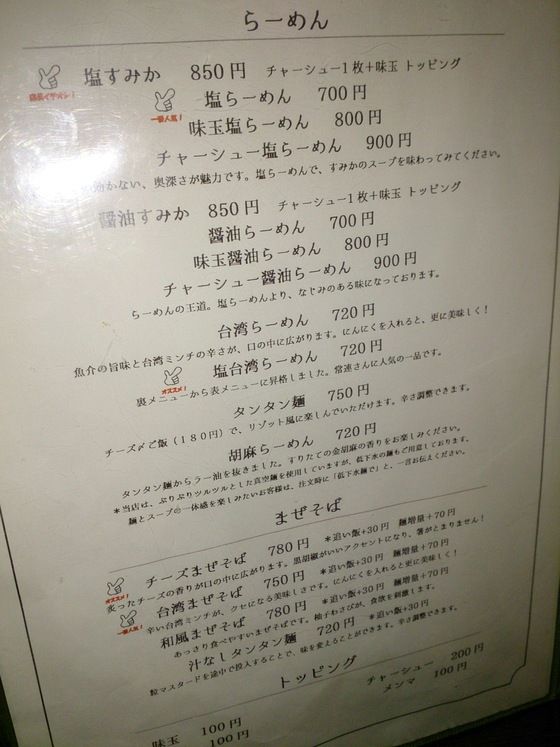 らーめん
店長イチオシ! 塩すみか 850円 チャーシュー1枚+味玉 トッピング
一番人気! 塩らーめん 700円
味玉塩らーめん 800円
チャーシュー塩らーめん 900円
かない、奥深さが魅力です。塩らーめんで、すみかのスープを味わってみてください。
醤油すみか 850円 チャーシュー1枚+味玉 トッピング
醤油らーめん 700円
味玉醤油らーめん 800円
チャーシュー醤油らーめん 900円
らーめんの王道。塩らーめんより、なじみのある味になっております。
台湾らーめん 720円
魚介の旨味と台湾ミンチの辛さが、口の中に広がります。にんにくを入れると、更に美味しく!
オススメ! 塩台湾らーめん 720円
裏メニューから表メニューに昇格しました。常連さんに人気の一品です。
タンタン麺 750円
チーズ〆ご飯(180円)で、リゾット風に楽しんでいただけます。辛さ調整できます。
胡麻らーめん 720円
タンタン麺からラー油を抜きました。すりたての金胡麻の香りをお楽しみください。
*当店は、ぷりぷりツルツルとした真空麺を使用していますが、低下水の麺もご用意しております。
麺とスープの一体感を楽しみたいお客様は、注文時に「低下水麺で」と、一言お伝えください。
まぜそば
オススメ! チーズまぜそば 780円 *追い飯+30円 麺増量+70円
炙ったチーズの香りが口の中に広がります。黒胡椒がいいアクセントになり、箸がとまりません!
一番人気! 台湾まぜそば 750円 *追い飯+30円 麺増量+70円
辛い台湾ミンチが、クセになる美味しさです。にんにくを入れると更に美味しく!
和風まぜそば 780円 *追い飯+30円 麺増量+70円
あっさり食べやすいまぜそばです。柚子わさびが、食欲を刺激します。
汁なしタンタン麺 720円 *追い飯+30円
粒マスタードを途中で投入することで、味を変えることができます。辛さ調整できます。
トッピング
チャーシュー 200円
メンマ 100円
味玉 100円
100円